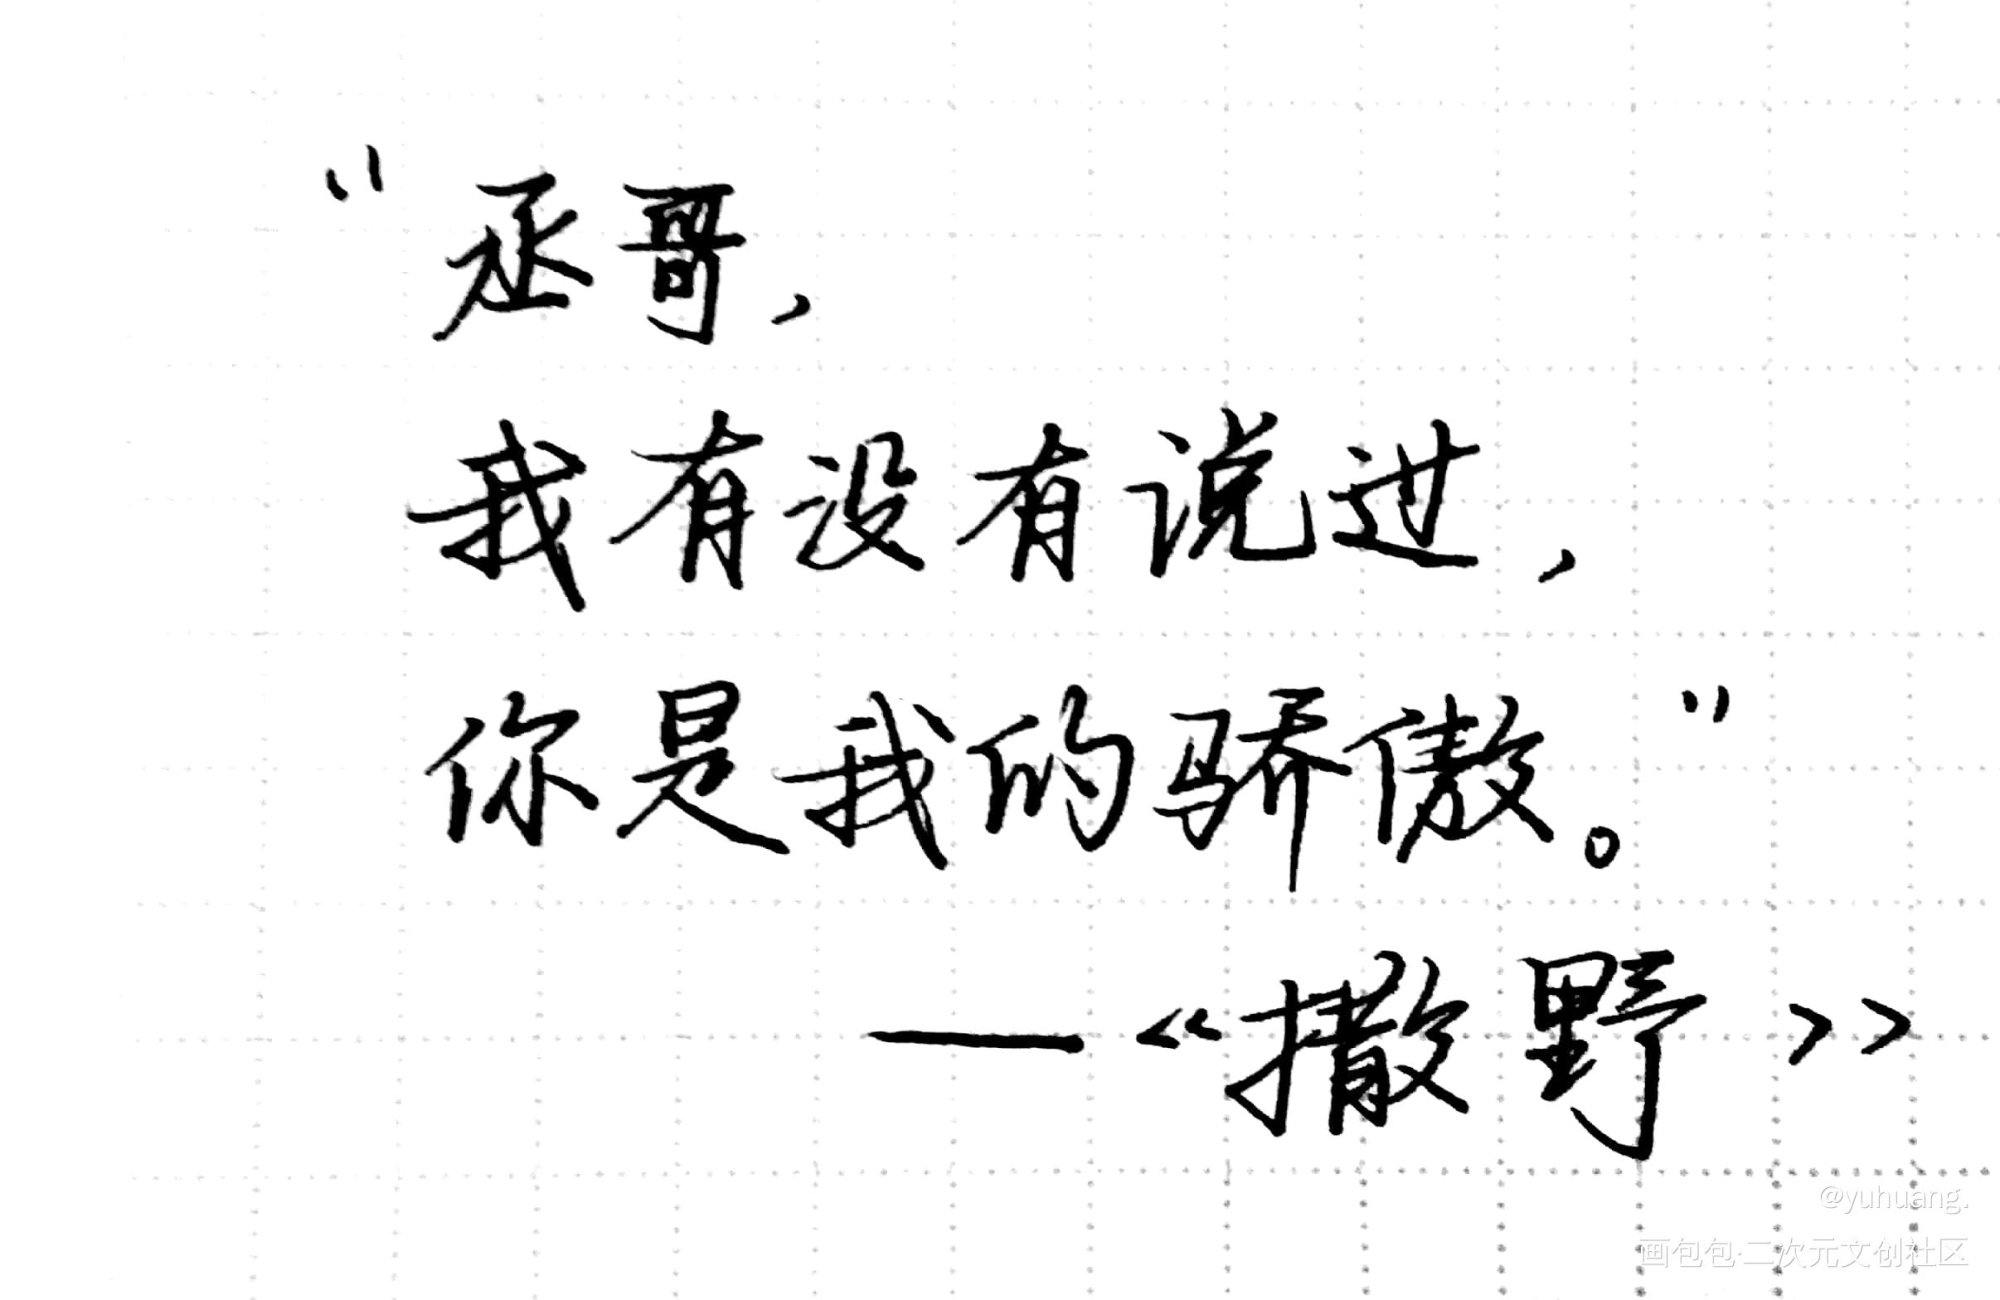 “丞哥，
我有没有说过，
你是我的骄傲。”
—《撒野》
@yuhuang.
画包包·二次元文创社区